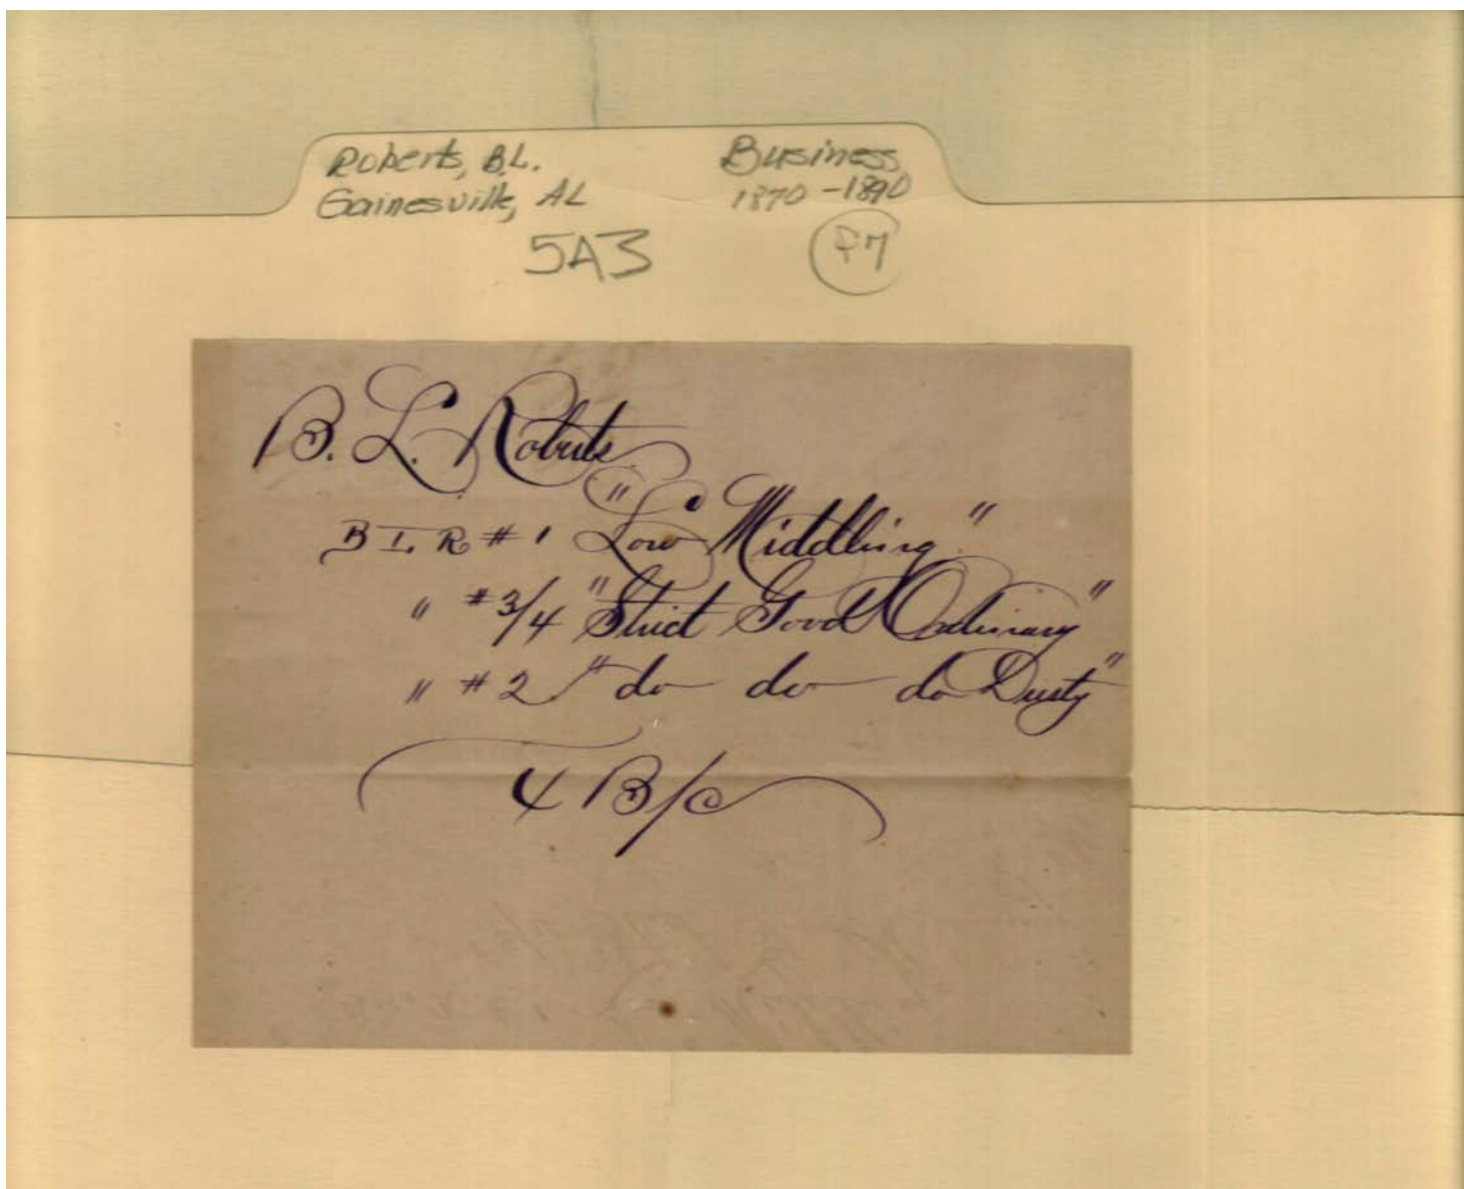 Roberts, B.L. Business
Gainesville, AL 1870-1890
5A3 F7
B. L. Roberts
BLR #1 "Low Middling"
" #3/4 "Strict Good Ordinary"
" #2 "do do do Dusty"
4 B/C